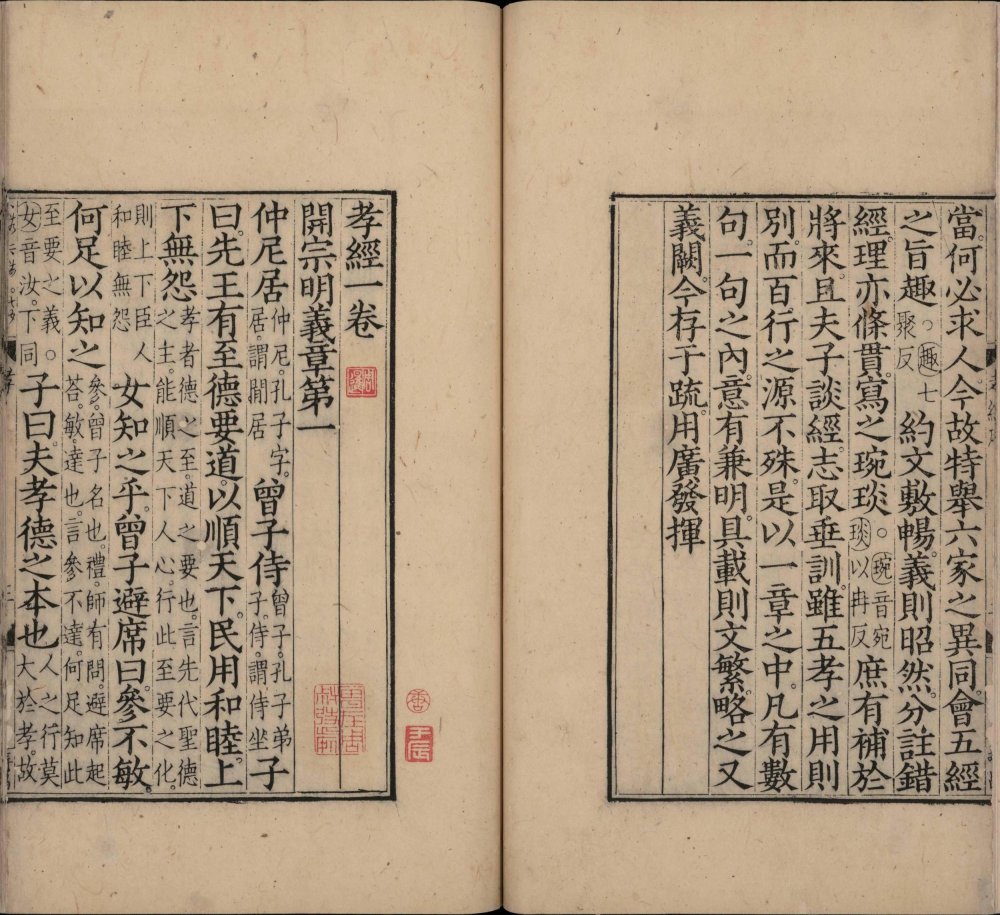 當。何必求人。今故特舉六家之異同。會五經
之旨趣。○趣七聚反約文敷暢。義則昭然。分註錯
經。理亦條貫。寫之琬琰。○琬音宛琰以冉反庶有補於
將來。且夫子談經。志取垂訓。雖五孝之用則
別。而百行之源不殊。是以一章之中。凡有數
句。一句之內。意有兼明。具載則文繁。略之又
義闕。今存于疏。用廣發揮
孝經一卷
開宗明義章第一
仲尼居仲尼。孔子字。居。謂閒居曾子侍曾子。孔子弟子。侍。謂侍坐子
曰。先王有至德要道。以順天下。民用和睦。上
下無怨孝者德之至。道之要也。言先代聖德之主。能順天下人心。行此至要之化。
則上下臣人和睦無怨女知之乎。曾子避席曰。參不敏。
何足以知之參。曾子名也。禮。師有問。避席起荅。敏。達也。言參不達。何足知此
至要之義。○女音汝。下同子曰。夫孝德之本也人之行莫大於孝。故